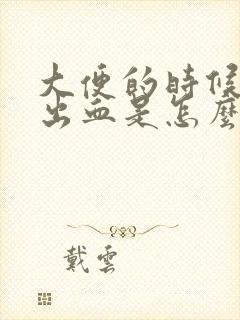 大便的時候
出血是怎麼
戴雲